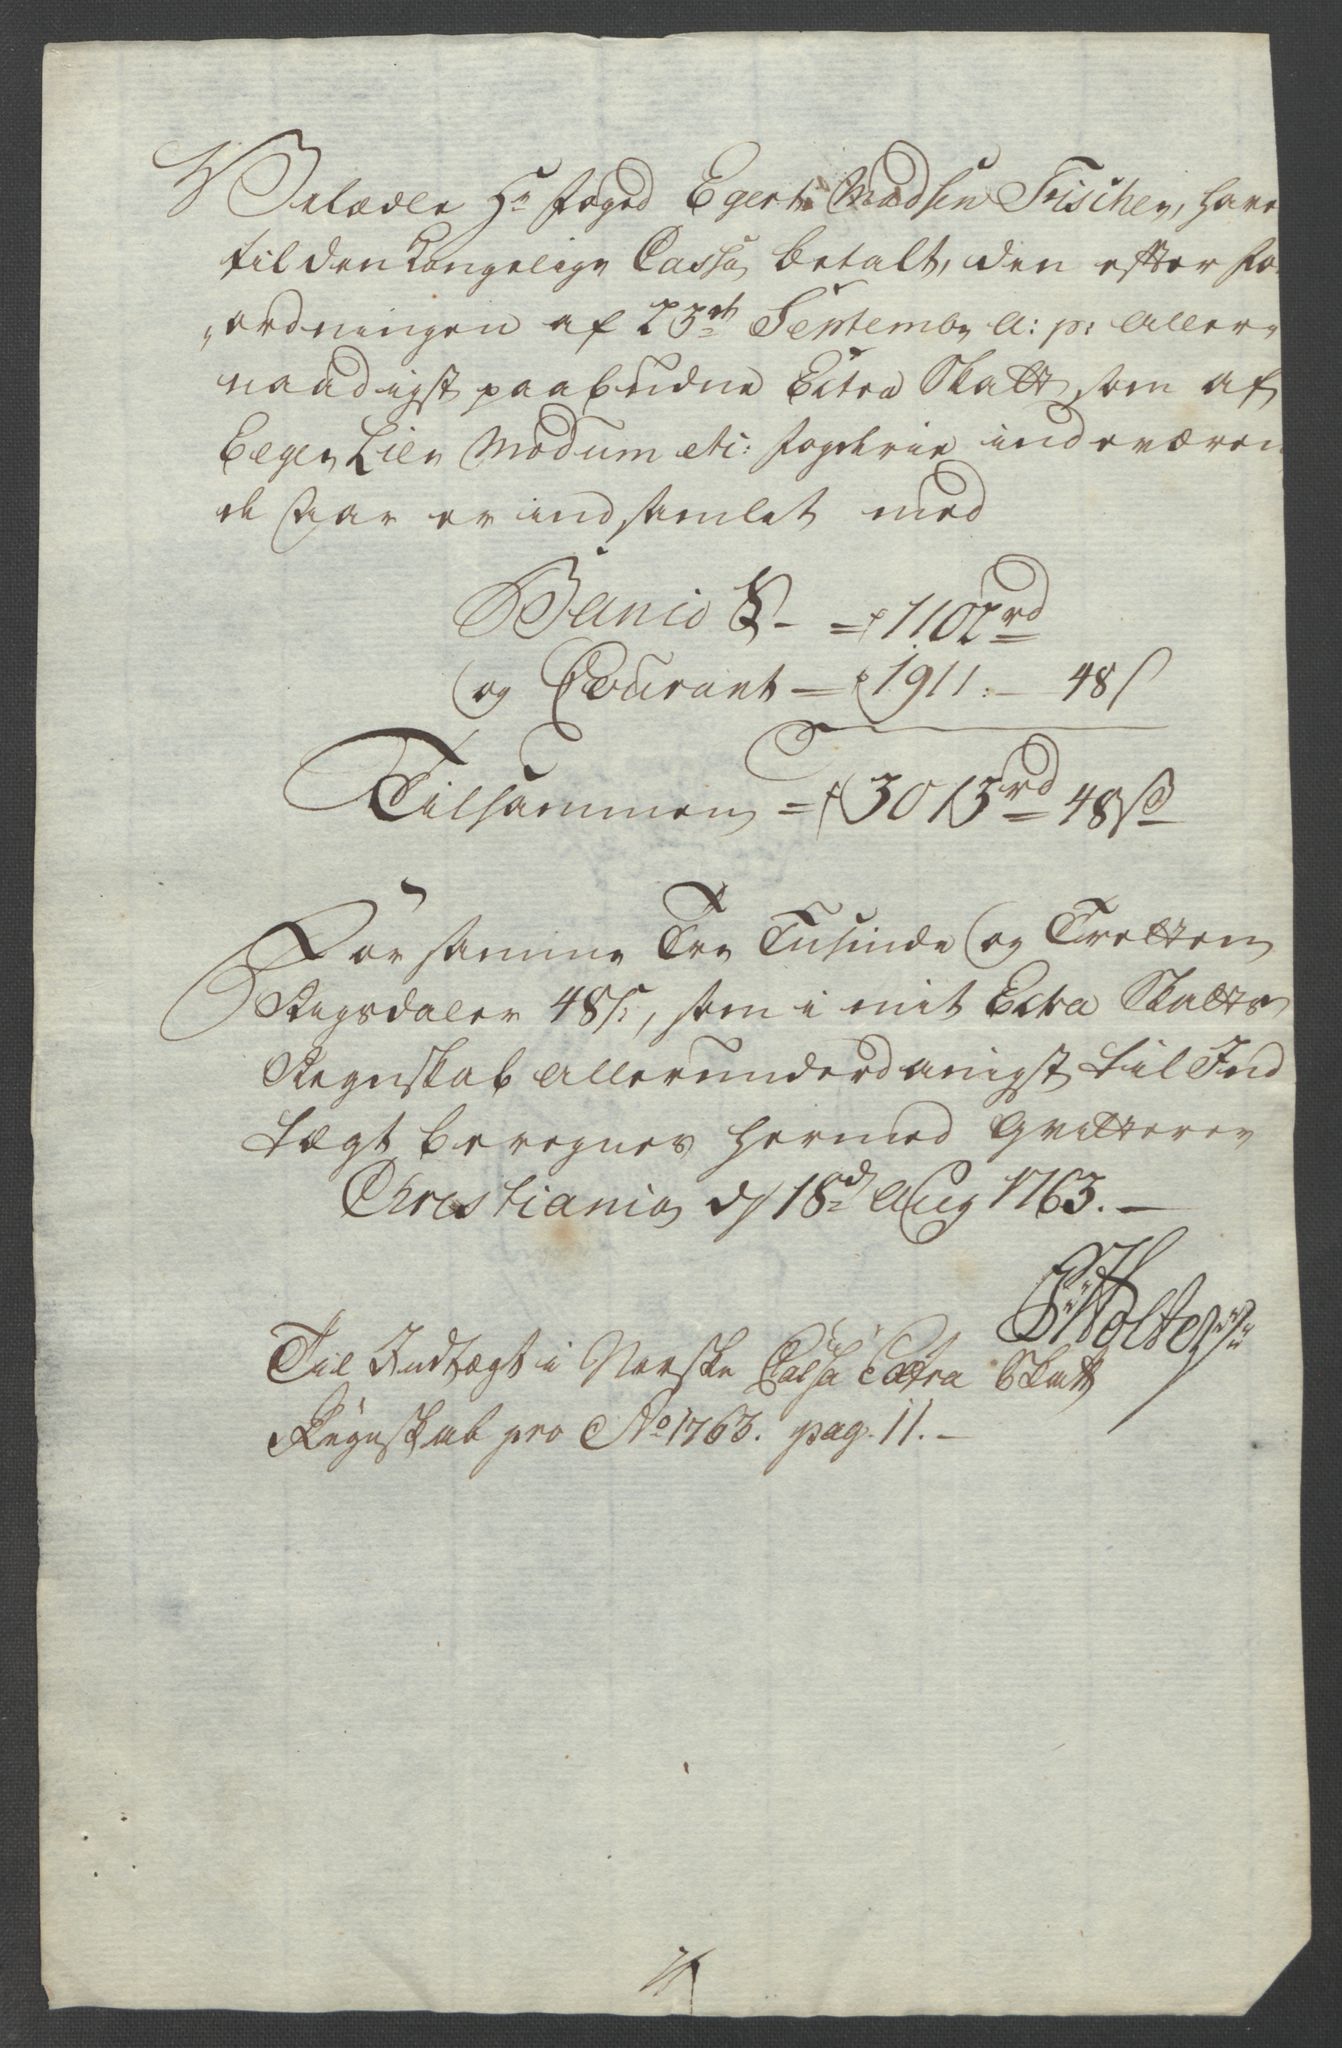 Velædle Hr Foged Egert Madsen Fischer, har
til den Kongelige Cassa betalt, den efter For
„ordningen af 23de Septembr a: p: aller„
naadigst paabudne Extra Skatt, som af
Eeger Lier Modum etc: Fogderie indeværen
de Aar er indsamlet med
Banco = 1102 rd
og Courant = 1911: – 48 s
Tilsammen = 3013 rd 48 s
For samme Tre Tusinde og Tretten
Rigsdaler 48 s, som i mit Extra Skatte
Regnskab allerunderdanigst til Ind
tægt beregnes hermed qvitterer
Christiania d 18d Aug 1763. –
Holter
Til Indtægt i Norske Cassa Extra Skatt
Regnskab pro Ao 1763. pag. 11. –